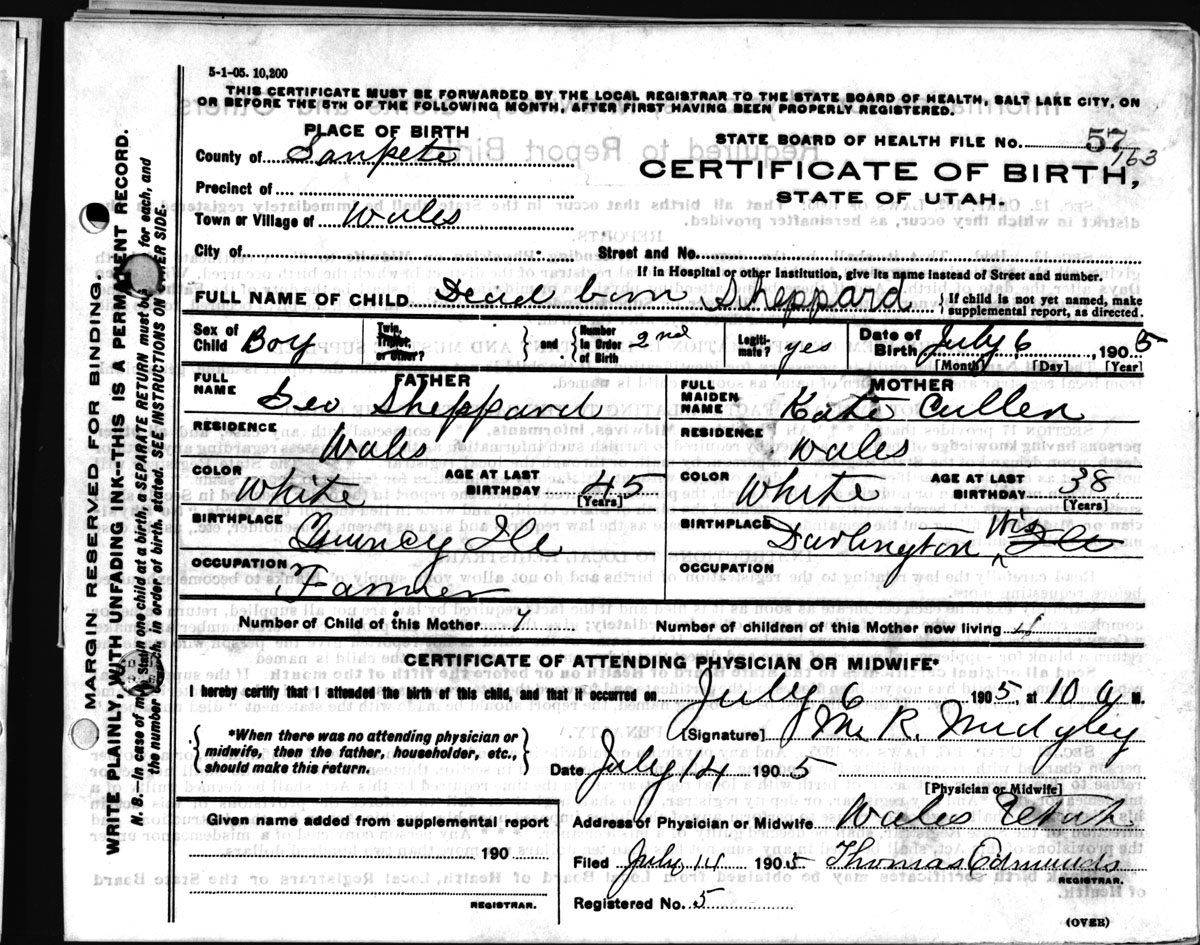 5-1-05. 10,200
THIS CERTIFICATE MUST BE FORWARDED BY THE LOCAL REGISTRAR TO THE STATE BOARD OF HEALTH, SALT LAKE CITY, ON
OR BEFORE THE 5TH OF THE FOLLOWING MONTH, AFTER FIRST HAVING BEEN PROPERLY REGISTERED.
PLACE OF BIRTH
STATE BOARD OF HEALTH FILE NO. 57
163
County of Sanpete
CERTIFICATE OF BIRTH,
Precinct of
STATE OF UTAH.
Town or Village of Wales
City of Street and No.
If in Hospital or other Institution, give its name instead of Street and number.
FULL NAME OF CHILD Dead born Sheppard } If child is not yet named, make
supplemental report, as directed.
Sex of Child Boy Twin, Triplet, or Other? } and { Number in Order of Birth 2nd Legitimate? yes Date of Birth July 6, 1905
[Month] [Day] [Year]
FATHER
FULL NAME Geo Sheppard
RESIDENCE Wales
COLOR White AGE AT LAST BIRTHDAY 45
[Years]
BIRTHPLACE Quincy Ill
OCCUPATION Farmer
MOTHER
FULL MAIDEN NAME Kate Cullen
RESIDENCE Wales
COLOR White AGE AT LAST BIRTHDAY 38
[Years]
BIRTHPLACE Darlington Wis
OCCUPATION
Number of Child of this Mother 7 Number of children of this Mother now living
CERTIFICATE OF ATTENDING PHYSICIAN OR MIDWIFE*
I hereby certify that I attended the birth of this child, and that it occurred on July 6 1905, at 10 a M.
*When there was no attending physician or
midwife, then the father, householder, etc.,
should make this return.
(Signature] M. R. Midgley
Date July 14 1905
[Physician or Midwife]
Given name added from supplemental report
190
REGISTRAR.
Address of Physician or Midwife Wales Utah
Filed July 14 1905 Thomas Edmunds
REGISTRAR.
Registered No. 5
(OVER)
MARGIN RESERVED FOR BINDING.
WRITE PLAINLY, WITH UNFADING INK--THIS IS A PERMANENT RECORD.
N. B.--In case of more than one child at a birth, a SEPARATE RETURN must be for each, and
the number each, in order of birth, stated. SEE INSTRUCTIONS ON OTHER SIDE.